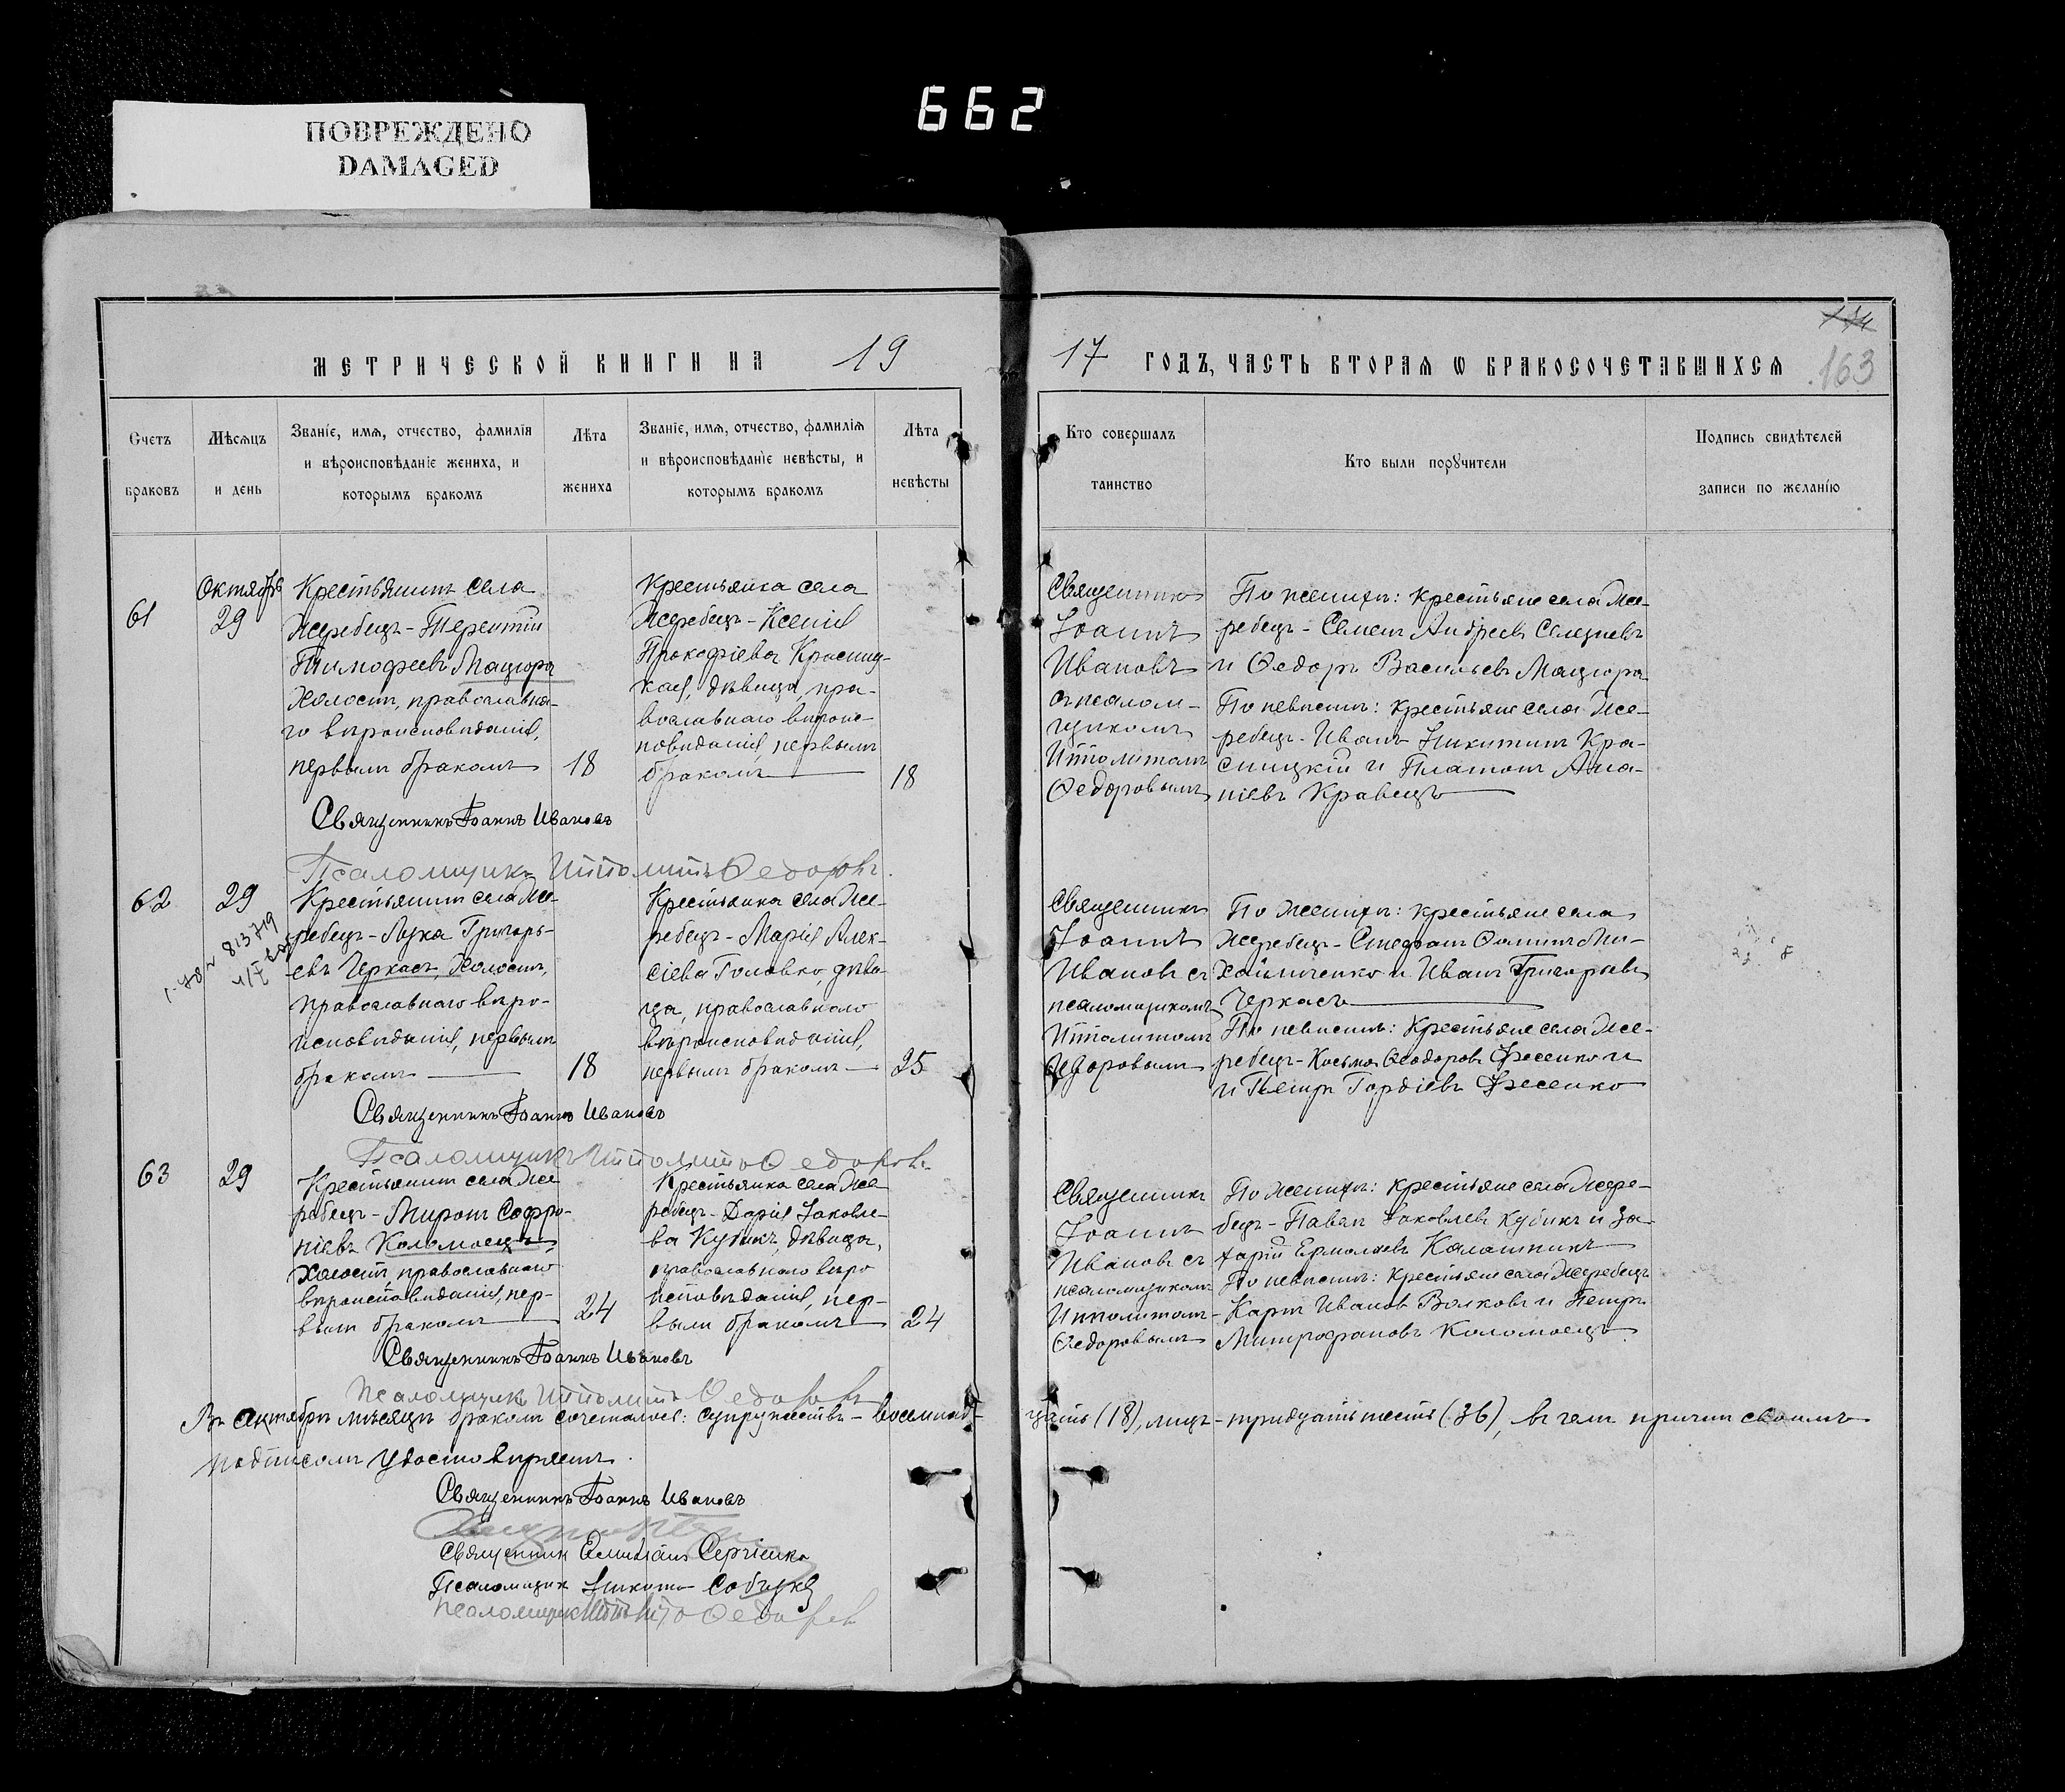 662
ПОВРЕЖДЕНО
DAMAGED
МЕТРИЧЕСКОЙ КНИГИ НА 19
17 ГОДЪ, ЧАСТЬ ВТОРАЯ Ѡ БРАКОСОЧЕТАВШИХСЯ
163
Счетъ
браковъ
Мѣсяцъ
и день
Званіе, имя, отчество, фамилія
и вѣроисповѣданіе жениха, и
которымъ бракомъ
Лѣта
жениха
Званіе, имя, отчество, фамилія
и вѣроисповѣданіе невѣсты, и
которымъ бракомъ
Лѣта
невѣсты
Кто совершалъ
таинство
Кто были поручители
Подпись свидѣтелей
записи по желанію
61
Октябрь
29
Крестьянинъ села
Жеребецъ - Терентій
Тимофеевъ Мацюра
холостъ, православна-
го вѣроисповѣданія,
первымъ бракомъ
18
Крестьянка села
Жеребецъ - Ксенія
Прокофіева Красниц-
кая, дѣвица, пра-
вославнаго вѣроис-
повѣданія, первымъ
бракомъ
18
Священникъ
Іоаннъ
Ивановъ
съ псалом-
щикомъ
Ипполитомъ
Ѳедоровымъ
По женихѣ: крестьяне села Же-
ребецъ - Семенъ Андреевъ Селезневъ
и Ѳедоръ Васильевъ Мацюра
По невѣстѣ: крестьяне села Же-
ребецъ - Иванъ Никитинъ Кра-
сницкій и Платонъ Ана-
ніевъ Кравецъ
Священникъ Іоаннъ Ивановъ
Псаломщикъ Ипполитъ Ѳедоровъ.
62
29
813719
Крестьянинъ села Же-
ребецъ - Лука Григорь-
евъ Черкасъ, холостъ,
православнаго вѣро-
исповѣданія, первымъ
бракомъ
18
Крестьянка села Же-
ребецъ - Марія Алек-
сіева Головко, дѣви-
ца, православнаго
вѣроисповѣданія,
первымъ бракомъ
25
Священникъ
Іоаннъ
Ивановъ съ
псаломщикомъ
Ипполитомъ
Ѳедоровымъ
По женихѣ: крестьяне села
Жеребецъ - Стефанъ Ѳоминъ Ми-
хайличенко и Иванъ Григорьевъ
Черкасъ
По невѣстѣ: Крестьяне села Же-
ребецъ - Косьма Ѳеодоровъ Фесенко и
и Петръ Гордіевъ Фесенко
Священникъ Іоаннъ Ивановъ
Псаломщикъ Ипполитъ Ѳедоровъ.
63
29
Крестьянинъ села Же
ребецъ - Миронъ Софро-
ніевъ Коломоецъ,
холостъ, православнаго
вѣроисповѣданія, пер-
вымъ бракомъ
24
Крестьянка села Же
ребецъ - Дарія Іаковле-
ва Кубикъ, дѣвица,
православнаго вѣро
исповѣданія, пер-
вымъ бракомъ
24
Священникъ
Іоаннъ
Ивановъ съ
псаломщикомъ
Ипполитомъ
Ѳедоровымъ
По женихѣ: крестьяне села Жере-
бецъ - Павелъ Іаковлевъ Кубикъ и За-
харій Ермолаевъ Калашникъ
По невѣстѣ: крестьяне села Жеребецъ
- Карпъ Ивановъ Волковъ и Петръ
Митрофановъ Коломоецъ
Священникъ Іоаннъ Ивановъ
Псаломщикъ Ипполитъ Ѳедоровъ
Въ Октябрѣ мѣсяцѣ бракомъ сочеталось: супружествъ - восемнад-
цать (18), лицъ - тридцать шесть (36), въ чемъ причтъ своимъ
подписомъ удостовѣряетъ.
Священникъ Іоаннъ Ивановъ
Священник Емиліанъ Сергіенко
Псаломщик Никита
Псаломщик Ипполитъ Ѳедоровъ